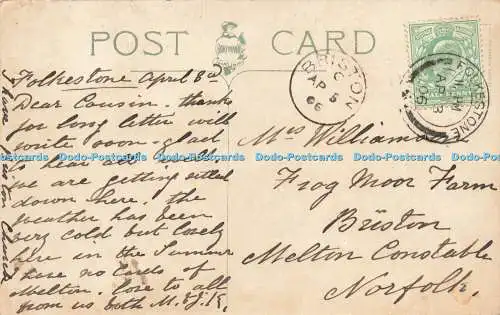 POST CARD
Folkestone April 8th
Dear Cousin. thanks
for long letter will
write soon. glad
to hear all well
we are getting settled
down here. the
weather has been
very cold but lovely
here in the Summer
have no Cards of
Melton. love to all
from us both M. & J. K.
BRISTON
C
AP 5
06
FOLKESTONE
AP
06
Mrs Williamson
Frog Moor Farm
Briston
Melton Constable
Norfolk
Dodo-Postcards Dodo-Postcards Dodo-Postcards Dodo-Postcards Dodo-Postcards